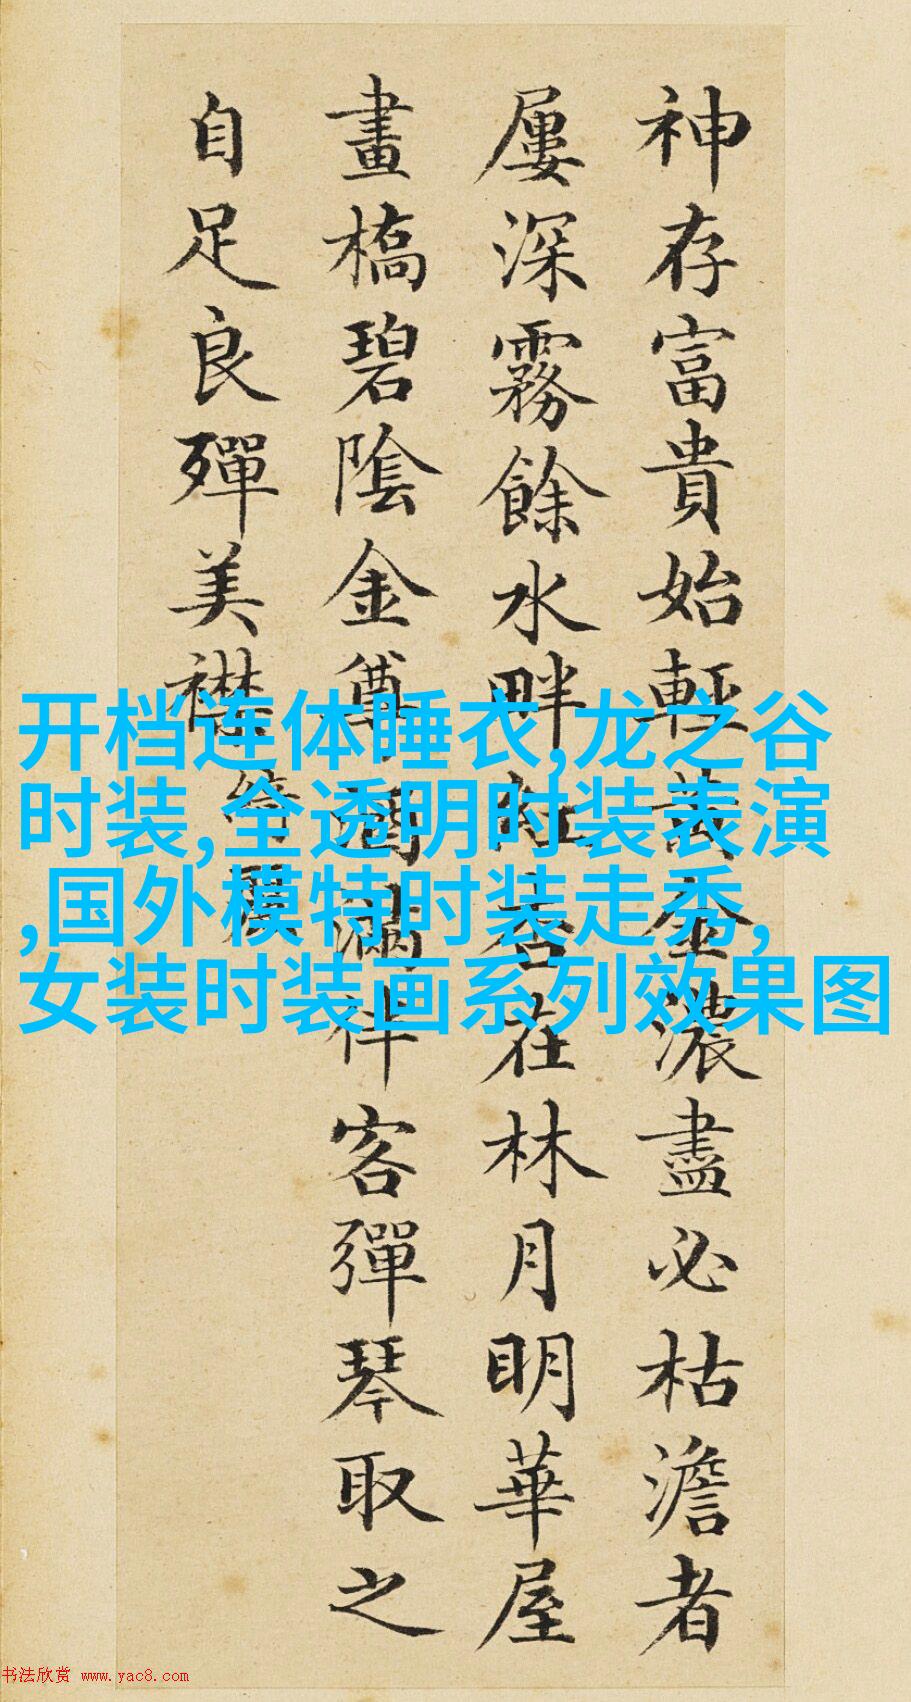 神存富貴始輕黃金濃盡必枯澹者
屢深霧餘水畔紅杏在林月明華屋
畫橋碧陰金尊酒滿伴客彈琴取之
自足良殫美襟
开档连体睡衣,龙之谷
时装,全透明时装表演
,国外模特时装走秀,
女装时装画系列效果图
书法欣赏 www.yac8.com